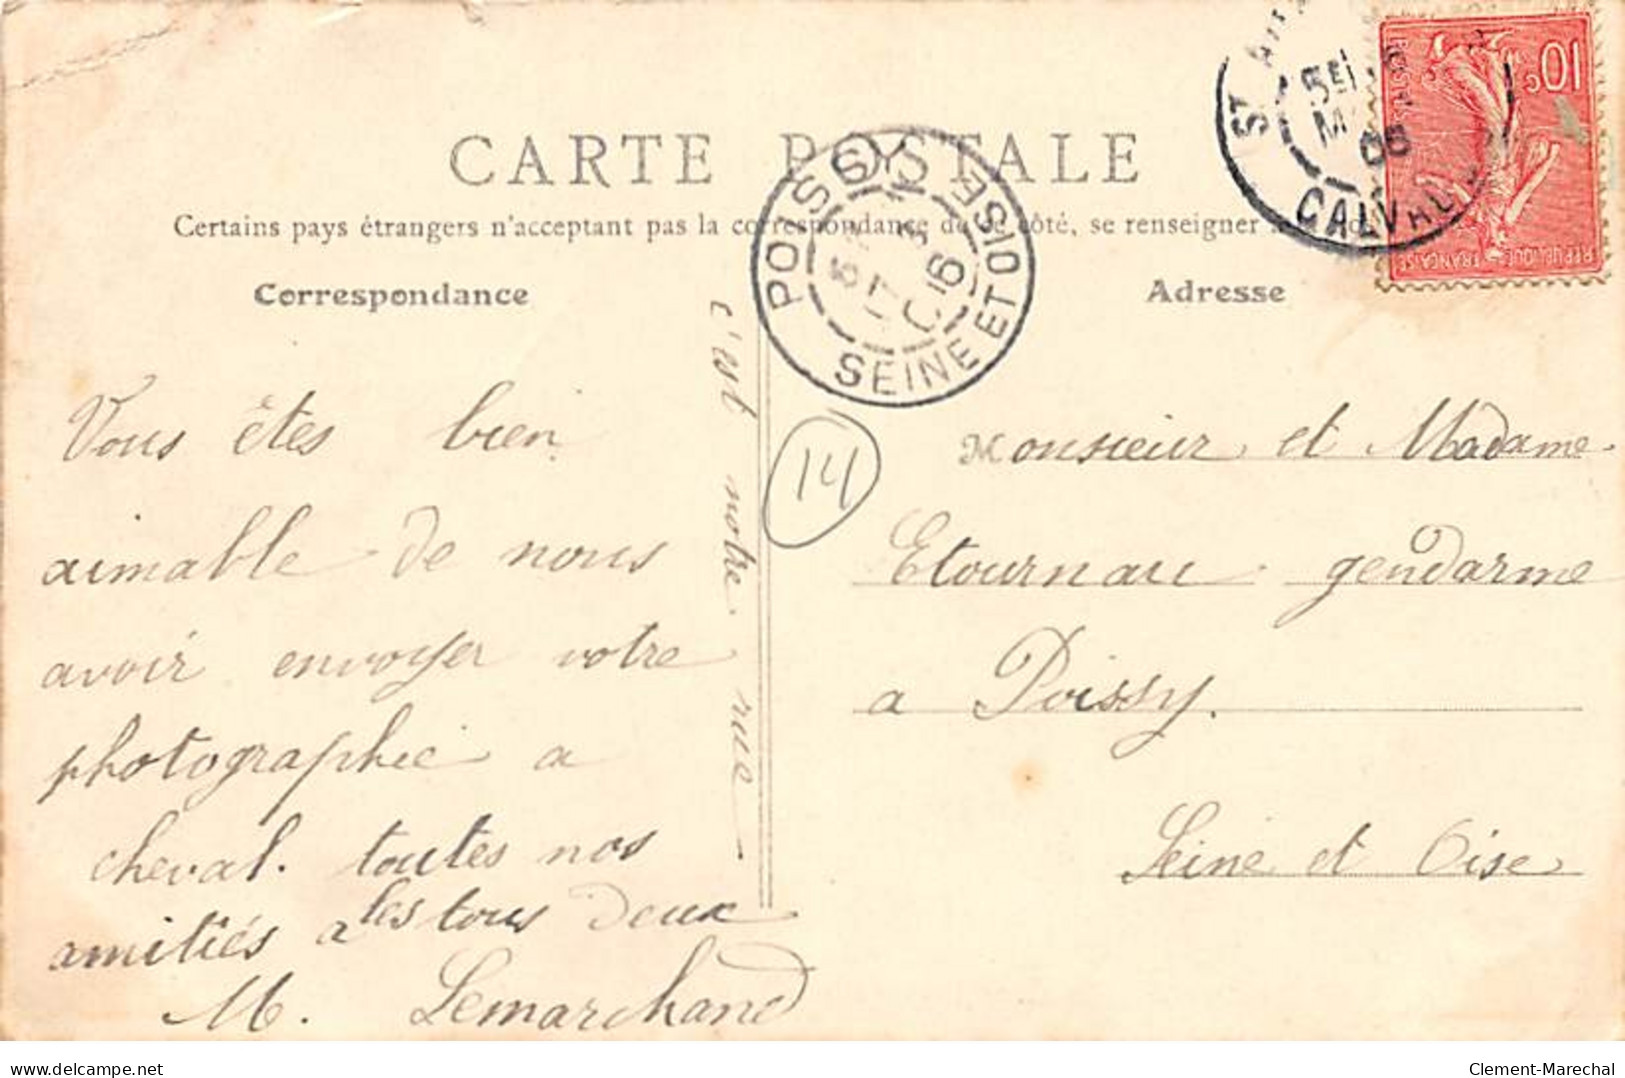 CARTE POSTALE
Certains pays étrangers n'acceptant pas la correspondance de ce côté, se renseigner à la
Correspondance
Adresse
Vous êtes bien
aimable de nous
avoir envoyer votre
photographie a
cheval. toutes nos
amitiés a les tous deux
M. Lemarchand
c'est notre rue
14
Monsieur et Madame
Etournau gendarme
a Poissy.
Seine et Oise
POISSY
SEINE ET OISE
ST
CALVADOS
10c
REPUBLIQUE FRANÇAISE
delcampe.net
Clement-Marechal